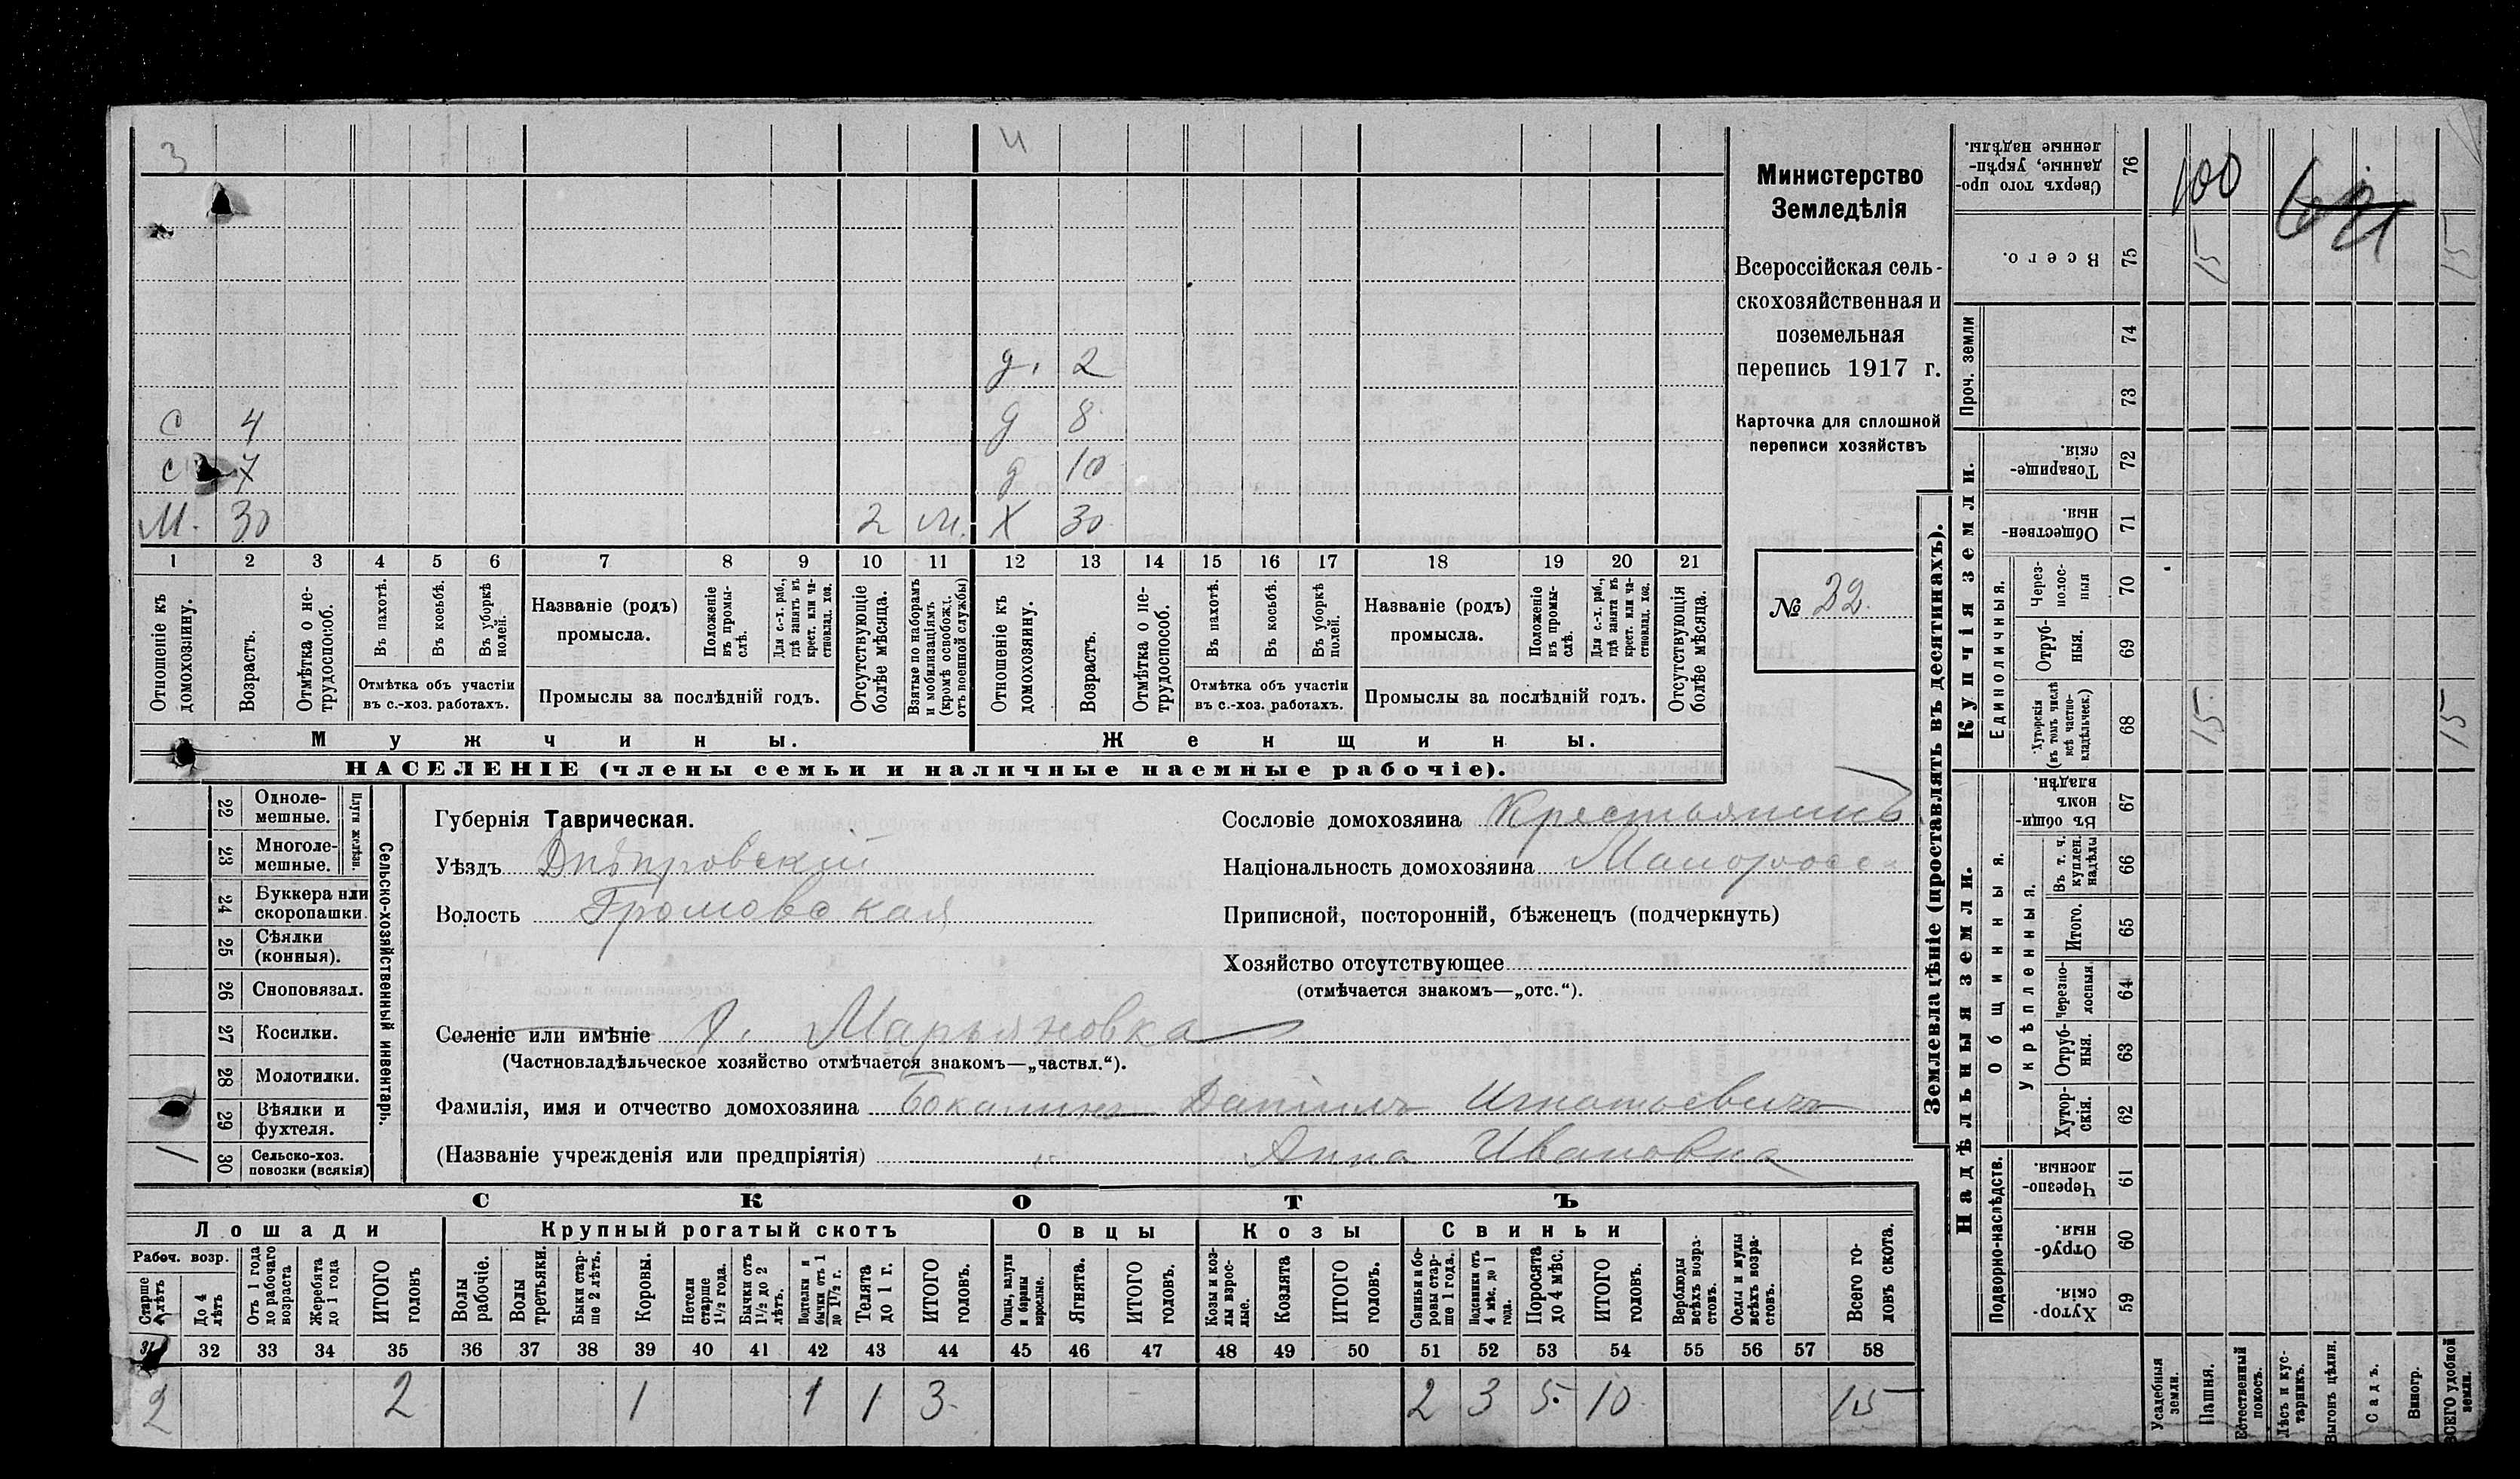 3 4
д. 2
с 4 д 8
с 7 д 10
М. 30 2 м. Х 30
1 2 3 4 5 6 7 8 9 10 11 12 13 14 15 16 17 18 19 20 21
Отношеніе къ домохозяину.
Возрастъ.
Отмѣтка о не-трудоспособ.
Въ пахотѣ.
Въ косьбѣ.
Въ уборкѣ полей.
Отмѣтка объ участіи
въ с.-хоз. работахъ.
Названіе (родъ)
промысла.
Положеніе въ промы-слѣ.
Для с.-х. раб., гдѣ занятъ въ крест. или ча-стновлад. хоз.
Промыслы за послѣдній годъ.
Отсутствующіе болѣе мѣсяца.
Взятые по наборамъ и мобилизаціямъ (кромѣ освобожд. отъ военной службы)
Отношеніе къ домохозяину.
Возрастъ.
Отмѣтка о не-трудоспособ.
Въ пахотѣ.
Въ косьбѣ.
Въ уборкѣ полей.
Отмѣтка объ участіи
въ с.-хоз. работахъ.
Названіе (родъ)
промысла.
Положеніе въ промы-слѣ.
Для с.-х. раб., гдѣ занята въ крест. или ча-стновлад. хоз.
Промыслы за послѣдній годъ.
Отсутствующія болѣе мѣсяца.
Мужчины.
Женщины.
НАСЕЛЕНІЕ (члены семьи и наличные наемные рабочіе).
Министерство
Земледѣлія
Всероссійская сель-
скохозяйственная и
поземельная
перепись 1917 г.
Карточка для сплошной
переписи хозяйствъ
№ 32.
22 Однолемешные.
23 Многолемешные.
Плуги желѣзн.
24 Буккера или скоропашки.
25 Сѣялки (конныя).
26 Сноповязал.
27 Косилки.
28 Молотилки.
29 Вѣялки и фухтеля.
/ 30 Сельско-хоз. повозки (всякія)
Сельско-хозяйственный инвентарь.
Губернія Таврическая.
Уѣздъ Днѣпровскій
Волость Громовская
Сословіе домохозяина Крестьянинъ
Національность домохозяина Малоросс
Приписной, посторонній, бѣженецъ (подчеркнуть)
Хозяйство отсутствующее
(отмѣчается знакомъ—„отс.“).
Селеніе или имѣніе Марьяновка
(Частновладѣльческое хозяйство отмѣчается знакомъ—„частвл.“).
Фамилія, имя и отчество домохозяина Даніилъ Игнатьевичъ
(Названіе учрежденія или предпріятія) Анна Ивановна
СКОТЪ
Лошади
Крупный рогатый скотъ
Овцы
Козы
Свиньи
Рабоч. возр.
Старше 4 лѣтъ
До 4 лѣтъ
Отъ 1 года до рабочаго возраста
Жеребята до 1 года
ИТОГО головъ
Волы рабочіе.
Волы третьяки.
Быки стар-ше 2 лѣтъ.
Коровы.
Нетели старше 1½ года.
Бычки отъ 1½ до 2 лѣтъ.
Подтелки и бычки отъ 1 до 1½ г.
Телята до 1 г.
ИТОГО головъ.
Овцы, валухи и бараны взрослые.
Ягнята.
ИТОГО головъ.
Козы и коз-лы взрос-лые.
Козлята
ИТОГО головъ.
Свиньи и бо-ровы стар-ше 1 года.
Подсвинки отъ 4 мѣс. до 1 года.
Поросята до 4 мѣс.
ИТОГО головъ.
Верблюды всѣхъ возра-стовъ.
Ослы и мулы всѣхъ возра-стовъ.
Всего го-ловъ скота.
31 32 33 34 35 36 37 38 39 40 41 42 43 44 45 46 47 48 49 50 51 52 53 54 55 56 57 58
2 2 1 1 1 3 2 3 5 10 15
Землевладѣніе (проставлять въ десятинахъ).
Надѣльныя земли.
Купчія земли.
Проч. земли
Сверхъ того про-данные, укрѣп-ленные надѣлы. 76 100
Всего. 75 15 15
74
73
Товарище-скія. 72
Обществен-ныя. 71
Единоличныя.
Через-полос-ныя 70
Отруб-ныя. 69
Хуторскія (въ томъ числѣ всѣ частно-владѣльческ.) 68 15 15
Общинныя.
Въ общи-номъ владѣн. 67
Укрѣпленныя.
Въ т. ч. куплен. надѣлы 66
Итого. 65
черезпо-лосныя 64
Отруб-ныя. 63
Хутор-скія. 62
Подворно-наслѣдств.
Черезпо-лосныя. 61
Отруб-ныя. 60
Хутор-скія. 59
Усадебныя земли.
Пашня.
Естественный покосъ.
Лѣсъ и кус-тарникъ.
Выгонъ цѣлин.
Садъ.
Виногр.
ВСЕГО удобной земли.